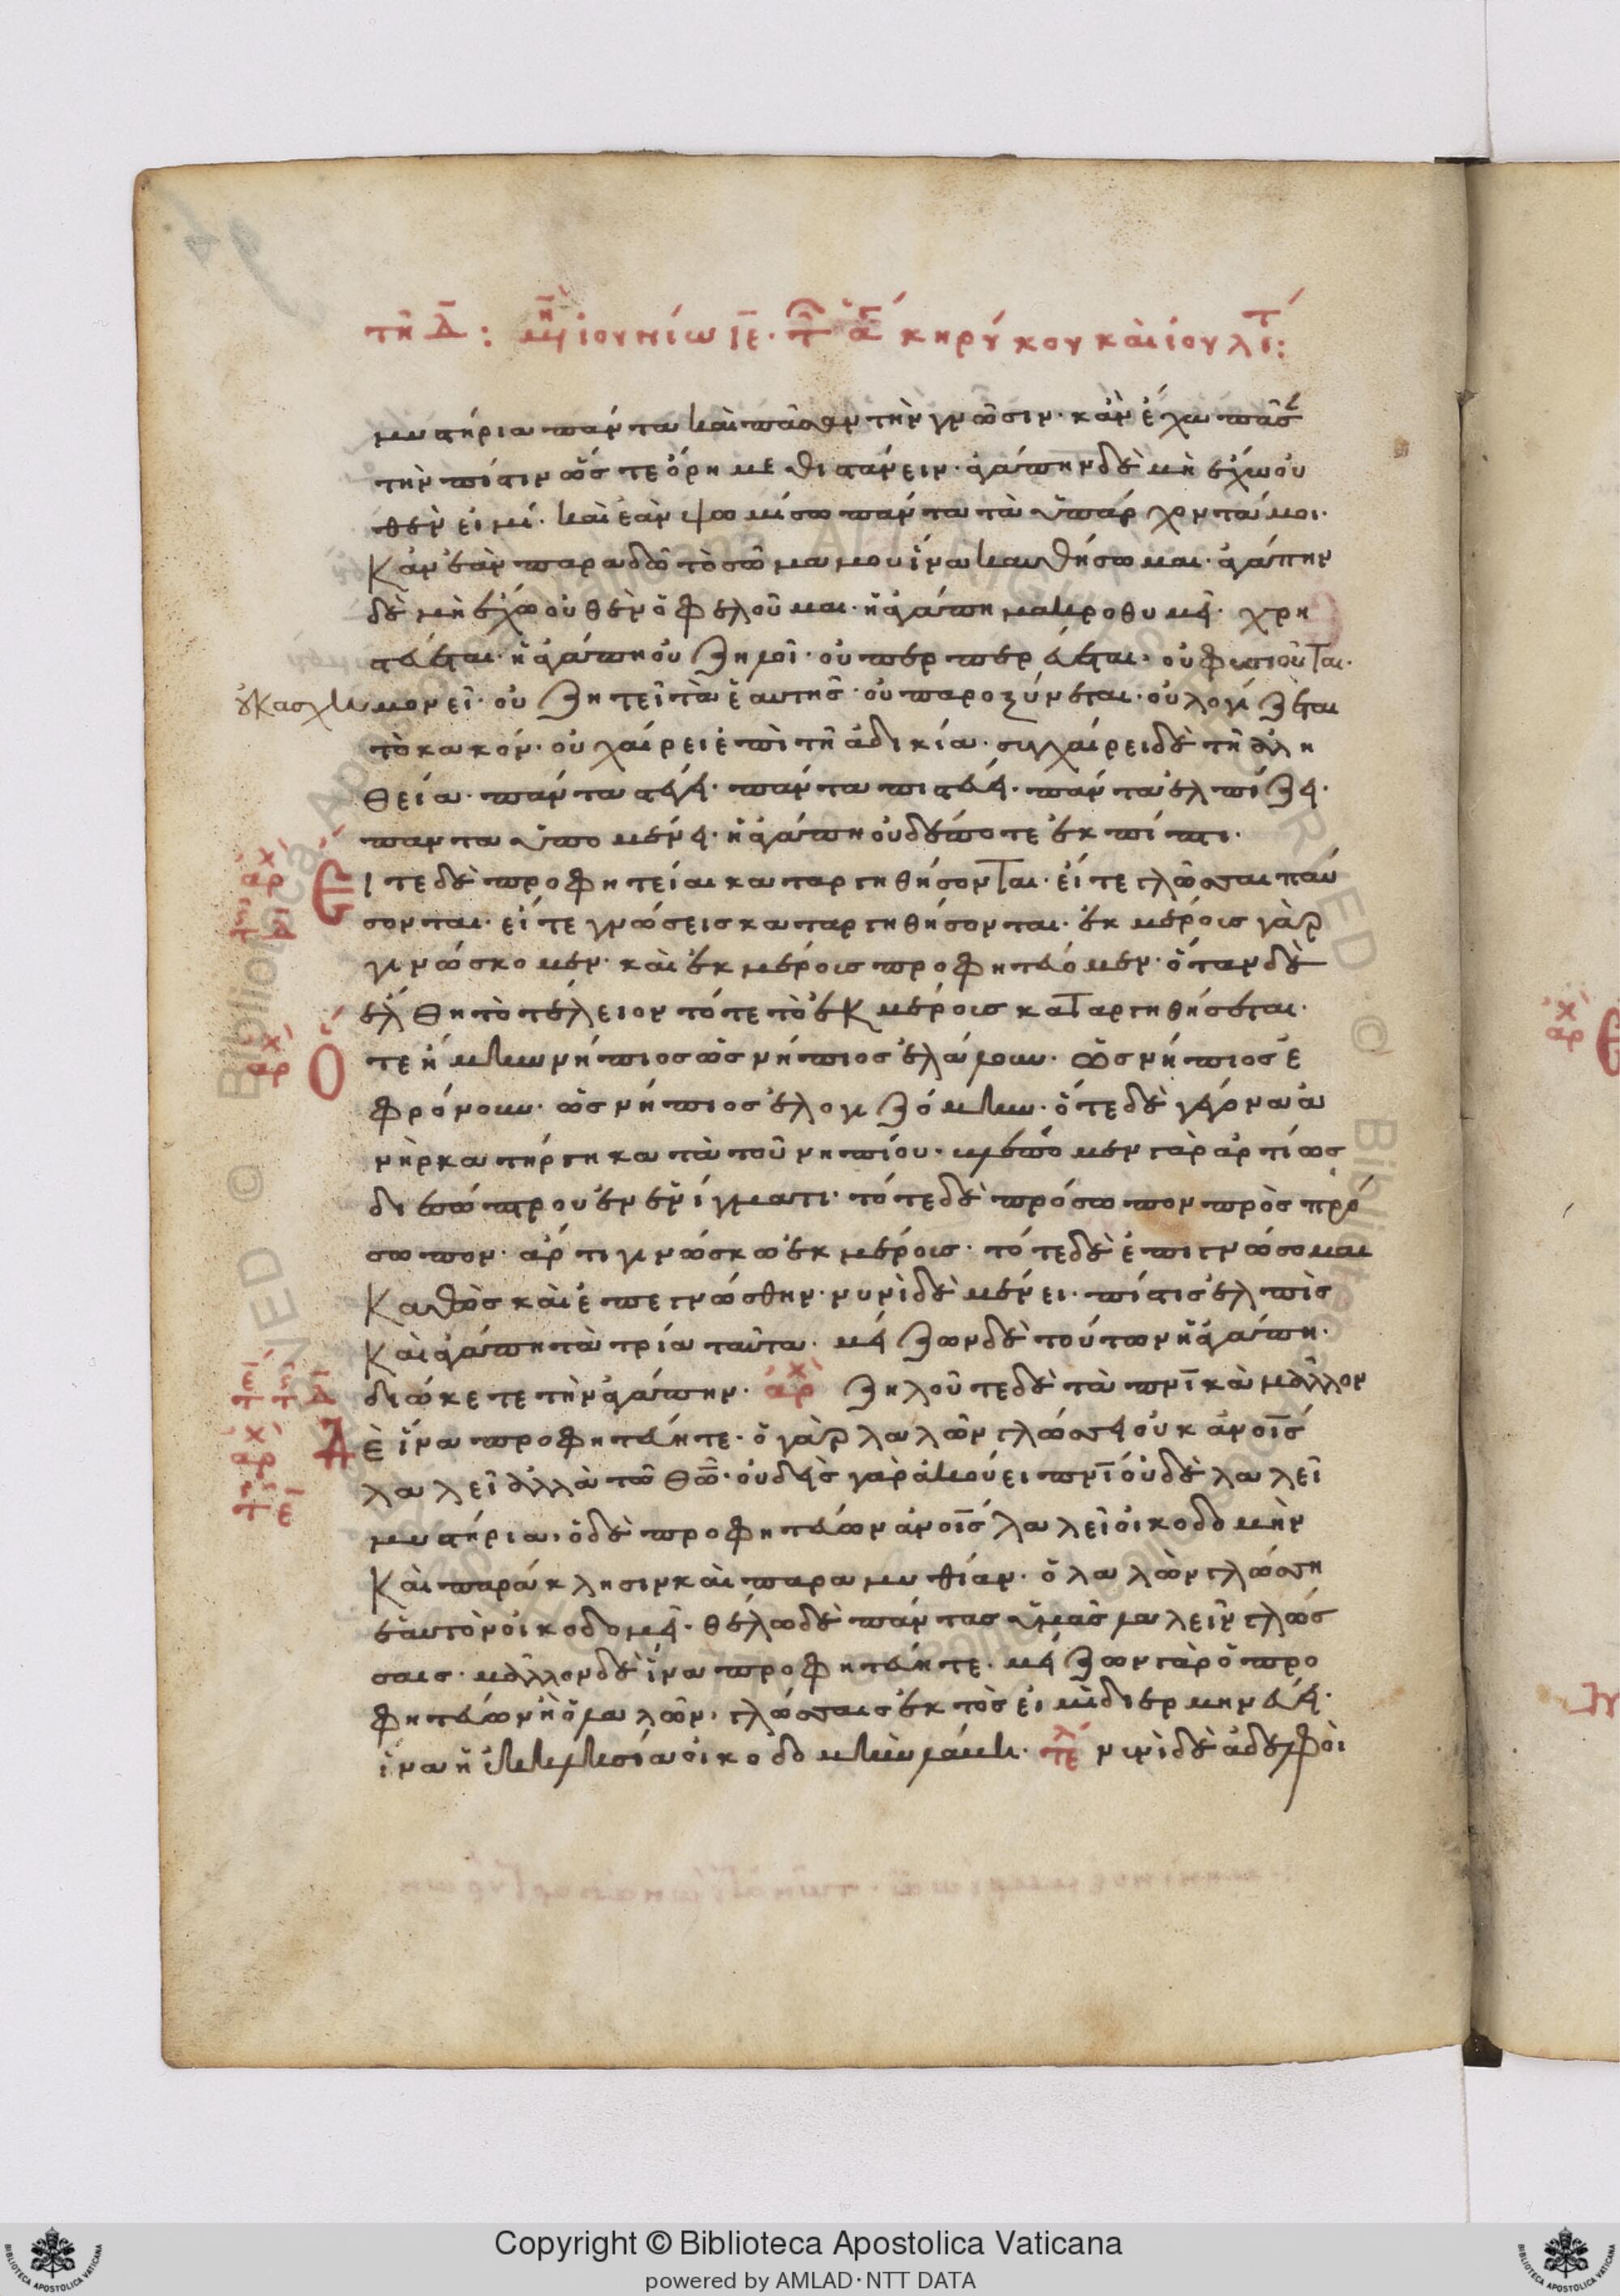 τῆ Δ: μηνὶ ἰουνίω ΙΕ. τῶν ἁγίων κηρύκου καὶ ἰουλίτ:
μυστήρια πάντα καὶ πᾶσαν τὴν γνῶσιν· κἂν ἔχω πᾶσ
τὴν πίστιν ὥστε ὄρη μεθιστάνειν· ἀγάπην δὲ μὴ ἔχω οὐ
θέν εἰμί. καὶ ἐὰν ψωμίσω πάντα τὰ ὑπάρχοντά μοι.
Κἂν ἐὰν παραδῶ τὸ σῶμα μου ἵνα καυθήσωμαι· ἀγάπην
δὲ μὴ ἔχω οὐθὲν ὀφελοῦμαι· ἡ ἀγάπη μακροθυμεῖ· χρη
στεύεται· ἡ ἀγάπη οὐ ζηλοῖ· οὐ περπερεύεται· οὐ φυσιοῦται·
οὐκ ασχημονεῖ· οὐ ζητεῖ τὰ ἑαυτῆς· οὐ παροξύνεται· οὐ λογίζεται
τὸ κακόν· οὐ χαίρει ἐπὶ τῆ ἀδικία· συγχαίρει δὲ τῆ ἀλη
θεία· πάντα στέγει· πάντα πιστεύει· πάντα ἐλπίζει·
παντα ὑπομένει· ἡ ἀγάπη οὐδέποτε ἐκπίπτει·
ἀρχ Εἴτε δὲ προφητείαι καταργηθήσονται· εἴτε γλῶσσαι παύ
σονται· εἴτε γνώσεις καταργηθήσονται· ἐκ μέρους γὰρ
γινώσκομεν· καὶ ἐκ μέρους προφητεύομεν· ὅταν δὲ
ἔλθη τὸ τέλειον τότε τὸ ἐκ μέρους καταργηθήσεται·
ἀρχ Ὅτε ἤμην νήπιος ὡς νήπιος ἐλάλουν· ὡς νήπιος ἐ
φρόνουν· ὡς νήπιος ἐλογιζόμην· ὅτε δὲ γέγονα ἀ
νὴρ κατήργηκα τὰ τοῦ νηπίου· βλέπομεν γὰρ ἄρτι ὡς
δι ἐσόπτρου ἐν αἰνίγματι· τότε δὲ πρόσωπον πρὸς πρό
σωπον· ἄρτι γινώσκω ἐκ μέρους· τότε δὲ ἐπιγνώσομαι
Καθὼς καὶ ἐπεγνώσθην· νυνὶ δὲ μένει· πίστις ἐλπὶς
Καὶ ἀγάπη τὰ τρία ταῦτα· μείζων δὲ τούτων ἡ ἀγάπη·
διώκετε τὴν ἀγάπην· ἀρχ ζηλοῦτε δὲ τὰ πνικὰ μᾶλλον
ἀρχ Δὲ ἵνα προφητεύητε· ὁ γὰρ λαλῶν γλώσση οὐκ ἀνοις
λαλεῖ ἀλλὰ τῶ θῶ· οὐδεὶς γὰρ ἀκούει πνι οὐδὲ λαλεῖ
μυστήρια· ὁ δὲ προφητεύων ἀνοις λαλεῖ οἰκοδομὴν
Καὶ παράκλησιν καὶ παραμυθίαν· ὁ λαλῶν γλώσση
ἑαυτὸν οἰκοδομεῖ· θέλω δὲ πάντας ὑμᾶς λαλεῖν γλώσ
σαις· μᾶλλον δὲ ἵνα προφητεύητε· μείζων γὰρ ὁ προ
φητεύων ἢ ὁ λαλῶν· γλώσσαις ἐκτὸς εἰ μὴ διερμηνεύει·
ἵνα ἡ ἐκκλησία οἰκοδομὴν λάβη· τέλ νυνὶ δὲ ἀδελφοὶ
Copyright © Biblioteca Apostolica Vaticana
powered by AMLAD·NTT DATA